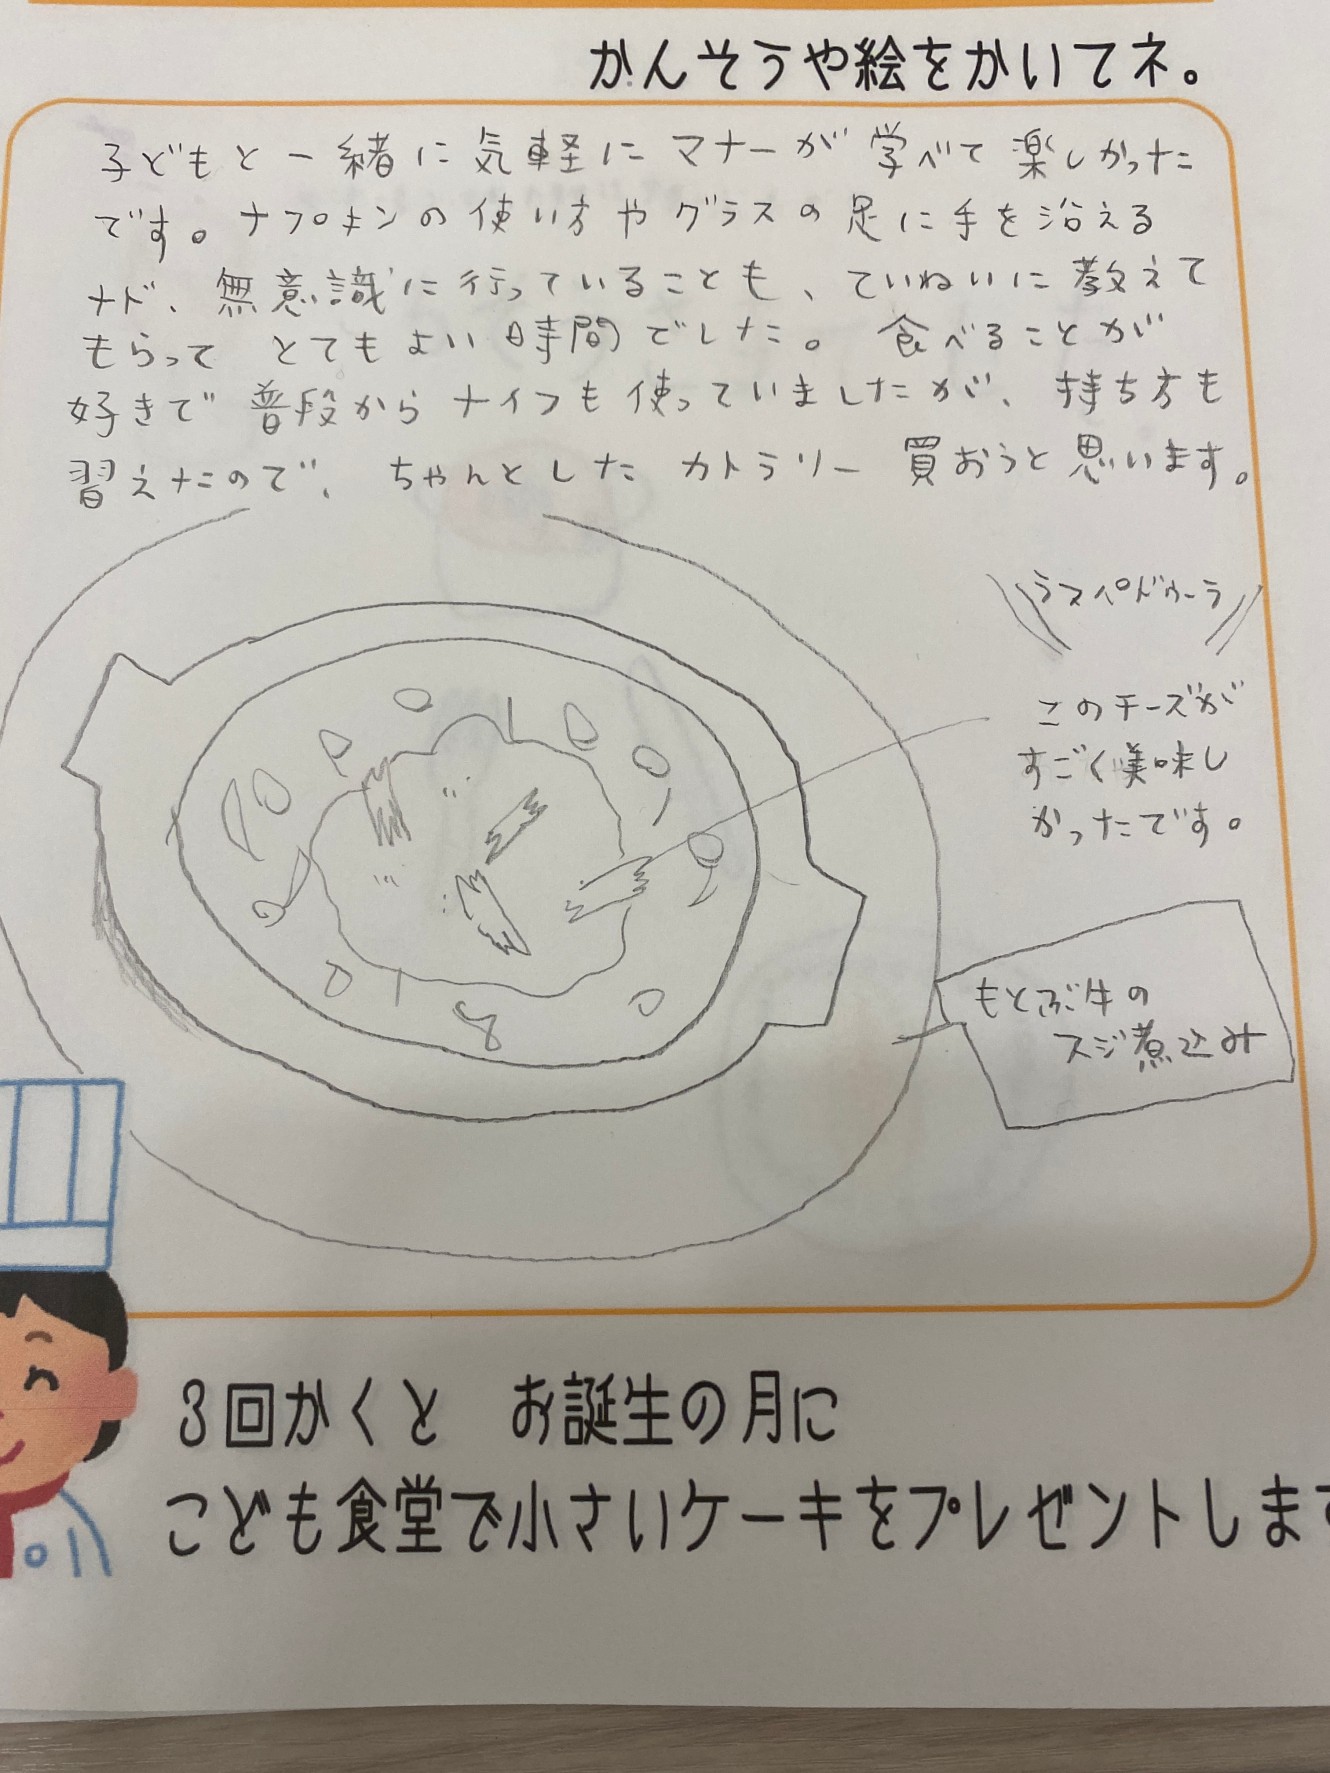 かんそうや絵をかいてネ。
子どもと一緒に気軽にマナーが学べて楽しかった
です。ナプキンの使い方やグラスの足に手を沿える
ナド、無意識に行っていることも、ていねいに教えて
もらって とてもよい時間でした。 食べることが
好きで 普段からナイフも使っていましたが、持ち方も
習えたので、ちゃんとした カトラリー 買おうと思います。
ラスペドゥーラ
このチーズが
すごく美味し
かったです。
もとぶ牛の
スジ煮込み
3回かくと お誕生の月に
こども食堂で小さいケーキをプレゼントします